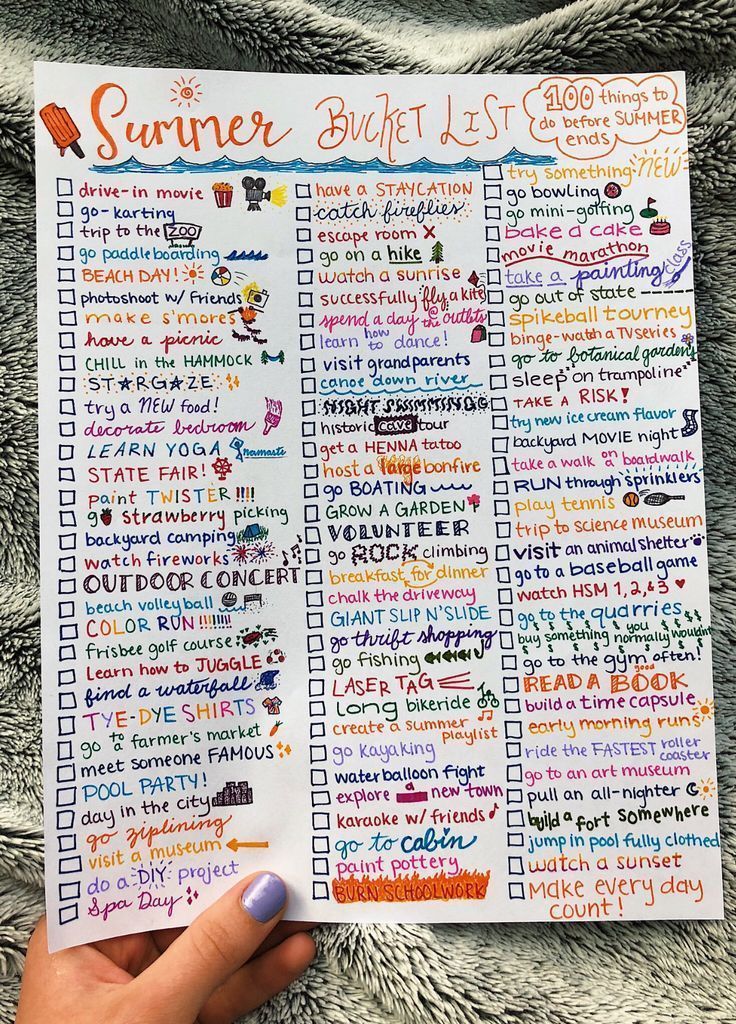 Summer BUCKET LIST
100 things to
do before SUMMER
ends
drive-in movie
go-karting
trip to the ZOO
go paddleboarding
BEACH DAY!
photoshoot w/ friends
make s'mores
have a picnic
CHILL in the HAMMOCK
STARGAZE
try a NEW food!
decorate bedroom
LEARN YOGA namaste
STATE FAIR!
paint TWISTER !!!!
go strawberry picking
backyard camping
watch fireworks
OUTDOOR CONCERT
beach volleyball
COLOR RUN!!!!!!!
frisbee golf course
Learn how to JUGGLE
find a waterfall
TYE-DYE SHIRTS
go to a farmer's market
meet someone FAMOUS
POOL PARTY!
day in the city
go ziplining
visit a museum
do a DIY project
Spa Day
have a STAYCATION
catch fireflies
escape room
go on a hike
watch a sunrise
successfully fly a kite
spend a day @ the outlets
learn how to dance!
visit grandparents
canoe down river
NIGHT SWIMMING
historic cave tour
get a HENNA tatoo
host a large bonfire
go BOATING
GROW A GARDEN
VOLUNTEER
go ROCK climbing
breakfast for dinner
chalk the driveway
GIANT SLIP N'SLIDE
go thrift shopping
go fishing
LASER TAG
long bikeride
create a summer
playlist
go kayaking
water balloon fight
explore a new town
karaoke w/ friends
go to cabin
paint pottery
BURN SCHOOLWORK
try something NEW
go bowling
go mini-golfing
bake a cake
movie marathon
take a painting class
go out of state
spikeball tourney
binge-watch a TV series
go to botanical gardens
sleep on trampoline
TAKE A RISK!
try new ice cream flavor
backyard MOVIE night
take a walk on a boardwalk
RUN through sprinklers
play tennis
trip to science museum
visit an animal shelter
go to a baseball game
watch HSM 1, 2, & 3
go to the quarries
buy something you normally wouldn't
go to the gym often!
READ A good BOOK
build a time capsule
early morning runs
ride the FASTEST roller
coaster
go to an art museum
pull an all-nighter
build a fort somewhere
jump in pool fully clothed
watch a sunset
Make every day
count!